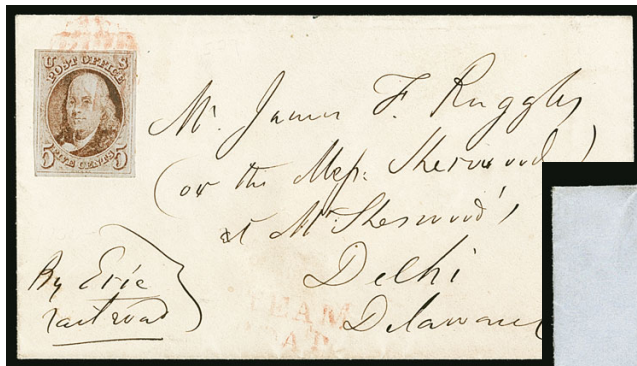 U S
POST OFFICE
5 FIVE CENTS 5
Mr. James F. Ruggles
(or the Mess: Sherwood)
at Mr Sherwood's
Delhi
Delaware
By Erie
railroad
TEAM